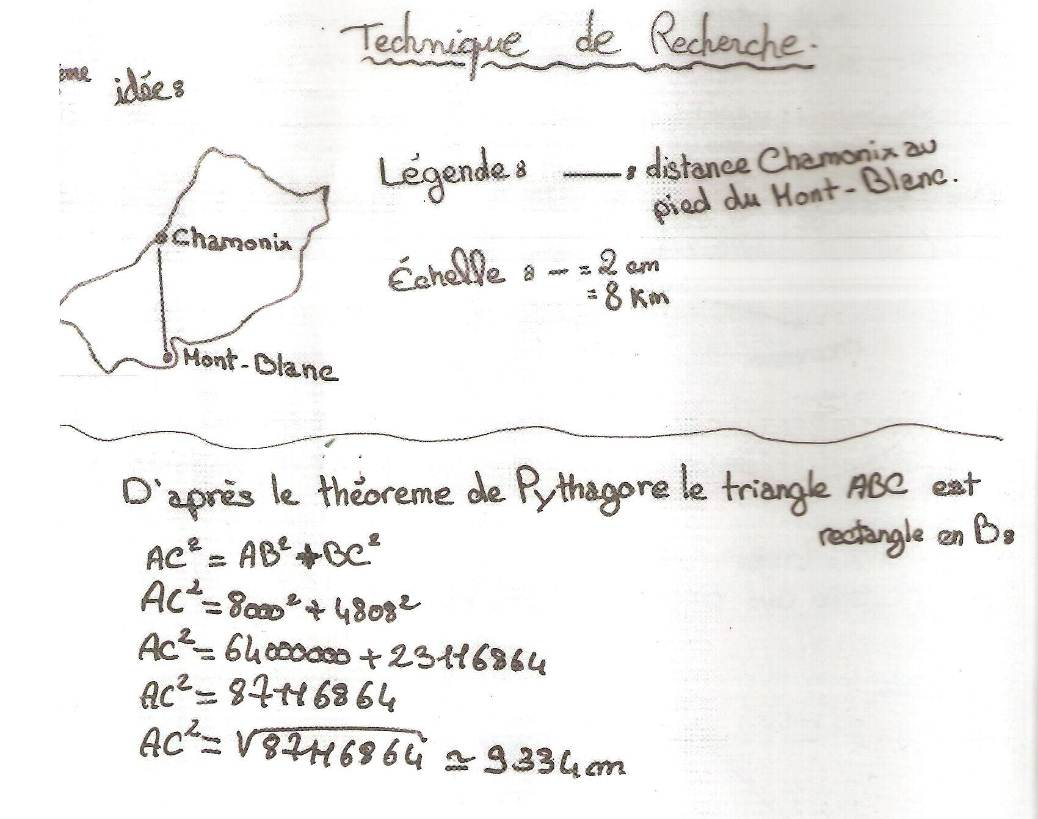 Technique de Recherche.
ème idées
Légende : — : distance Chamonix au
pied du Mont-Blanc.
Chamonix
Échelle : — = 2 cm
= 8 Km
Mont-Blanc
D'après le théoreme de Pythagore le triangle ABC est
rectangle en B :
AC² = AB² + BC²
AC² = 8000² + 4808²
AC² = 64000000 + 23116864
AC² = 87116864
AC² = √87116864 ≃ 9334 m